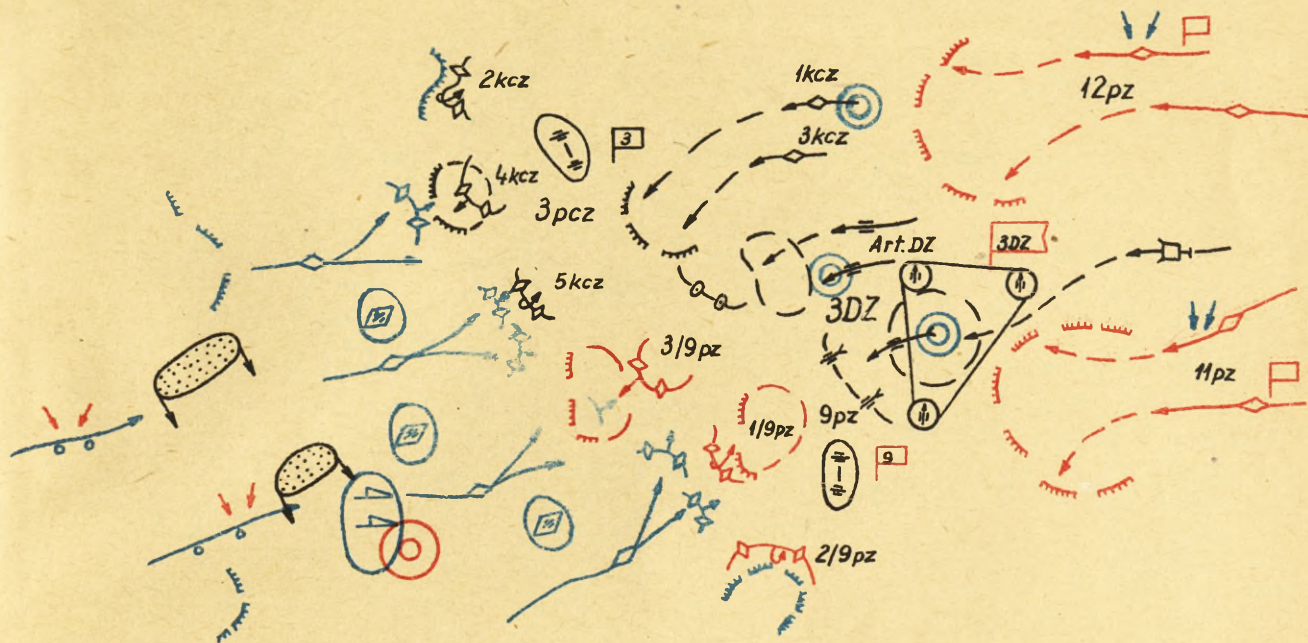 2kcz
1kcz
12pz
3
3kcz
4kcz
3pcz
Art.DZ
3DZ
5kcz
3DZ
3/9pz
11pz
1/9pz
9pz
9
2/9pz